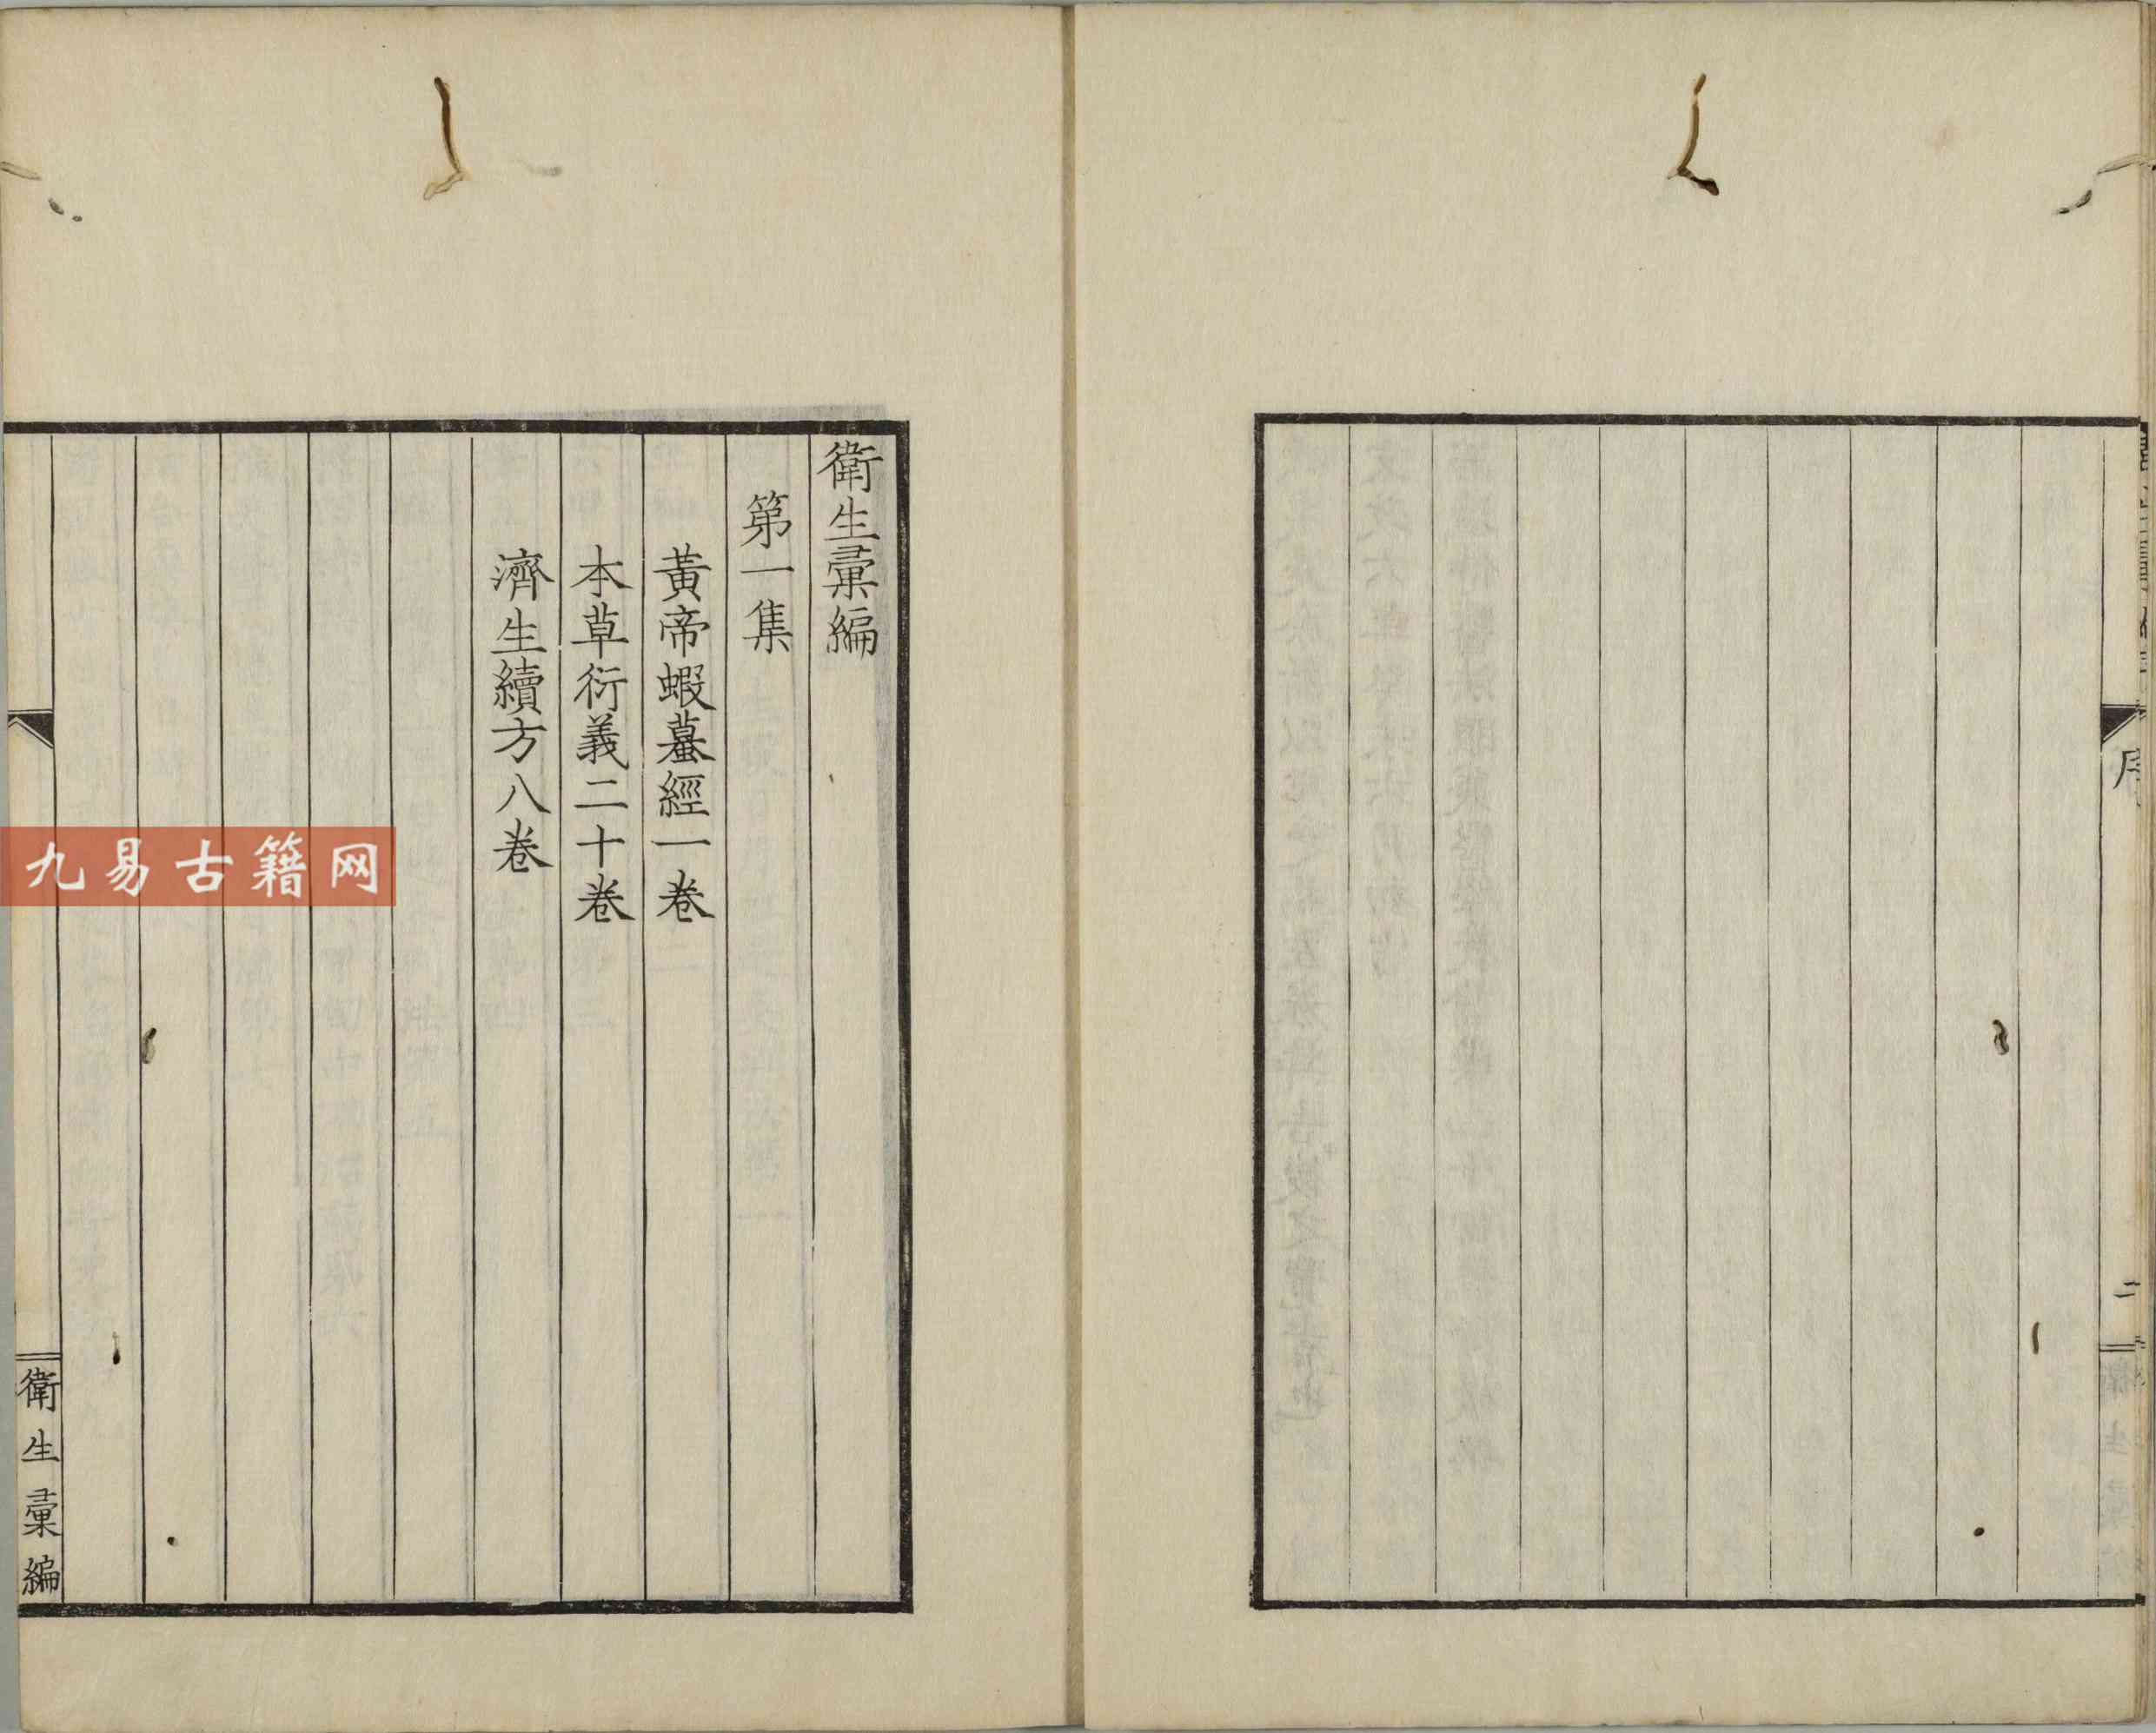 序
二
衛生彙編
第一集
黃帝蝦蟇經一卷
本草衍義二十卷
濟生續方八卷
衛生彙編
九易古籍网